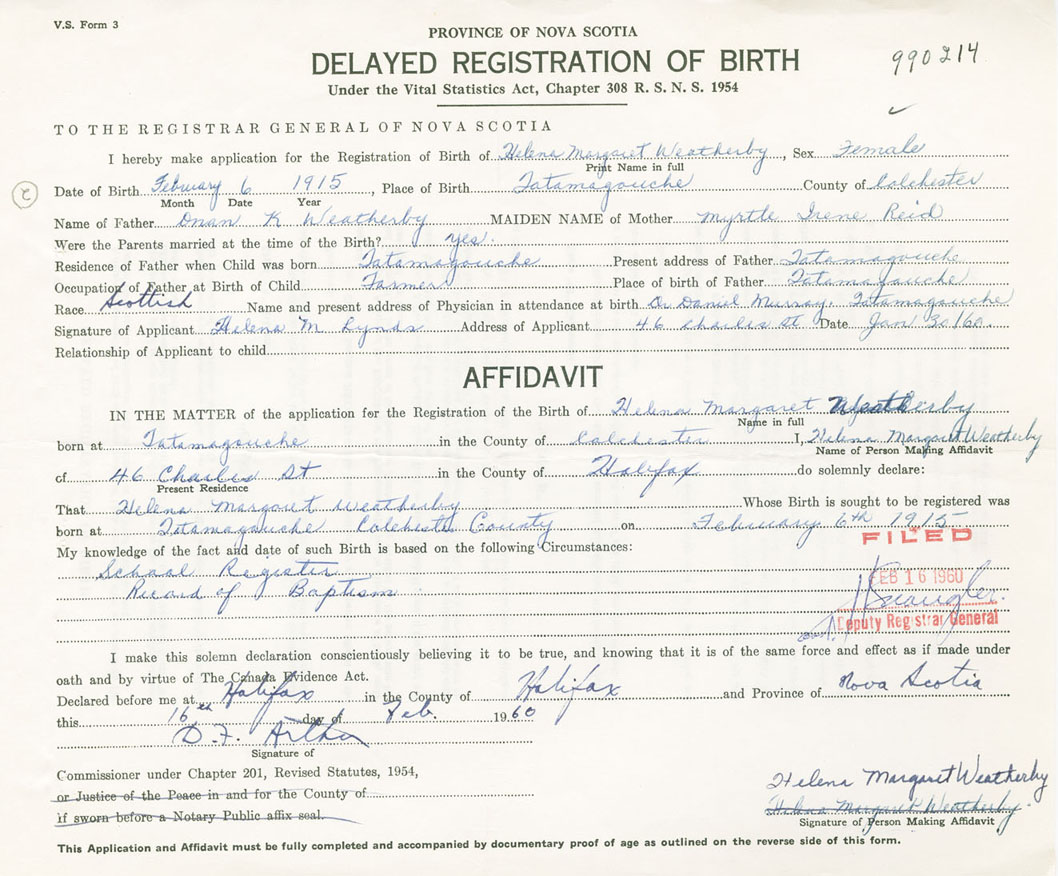 V.S. Form 3
PROVINCE OF NOVA SCOTIA
DELAYED REGISTRATION OF BIRTH
990214
Under the Vital Statistics Act, Chapter 308 R. S. N. S. 1954
TO THE REGISTRAR GENERAL OF NOVA SCOTIA
I hereby make application for the Registration of Birth of Helena Margaret Weatherby, Sex Female
Print Name in full
Date of Birth February 6 1915, Place of Birth Tatamagouche County of Colchester
Month Date Year
Name of Father Onan K Weatherby MAIDEN NAME of Mother Myrtle Irene Reid
Were the Parents married at the time of the Birth? yes.
Residence of Father when Child was born Tatamagouche Present address of Father Tatamagouche
Occupation of Father at Birth of Child Farmer Place of birth of Father Tatamagauche
Race Scottish Name and present address of Physician in attendance at birth Dr. Daniel Murray, Tatamagouche
Signature of Applicant Helena M Lynds Address of Applicant 46 Charles St Date Jan 30/60.
Relationship of Applicant to child
AFFIDAVIT
IN THE MATTER of the application for the Registration of the Birth of Helena Margaret Weatherby
Name in full
born at Tatamagouche in the County of Colchester I, Helena Margaret Weatherby
Name of Person Making Affidavit
of 46 Charles St in the County of Halifax do solemnly declare:
Present Residence
That Helena Margaret Weatherby Whose Birth is sought to be registered was
born at Tatamagauche Colchester County on February 6th 1915
My knowledge of the fact and date of such Birth is based on the following Circumstances:
FILED
School Register
FEB 16 1960
Record of Baptism
Deputy Registrar General
I make this solemn declaration conscientiously believing it to be true, and knowing that it is of the same force and effect as if made under
oath and by virtue of The Canada Evidence Act.
Declared before me at Halifax in the County of Halifax and Province of Nova Scotia
this 16th day of Feb. 1960
D.F. Arthur
Signature of
Commissioner under Chapter 201, Revised Statutes, 1954,
Helena Margaret Weatherby
or Justice of the Peace in and for the County of
Helena Margaret Weatherby.
if sworn before a Notary Public affix seal.
Signature of Person Making Affidavit
This Application and Affidavit must be fully completed and accompanied by documentary proof of age as outlined on the reverse side of this form.